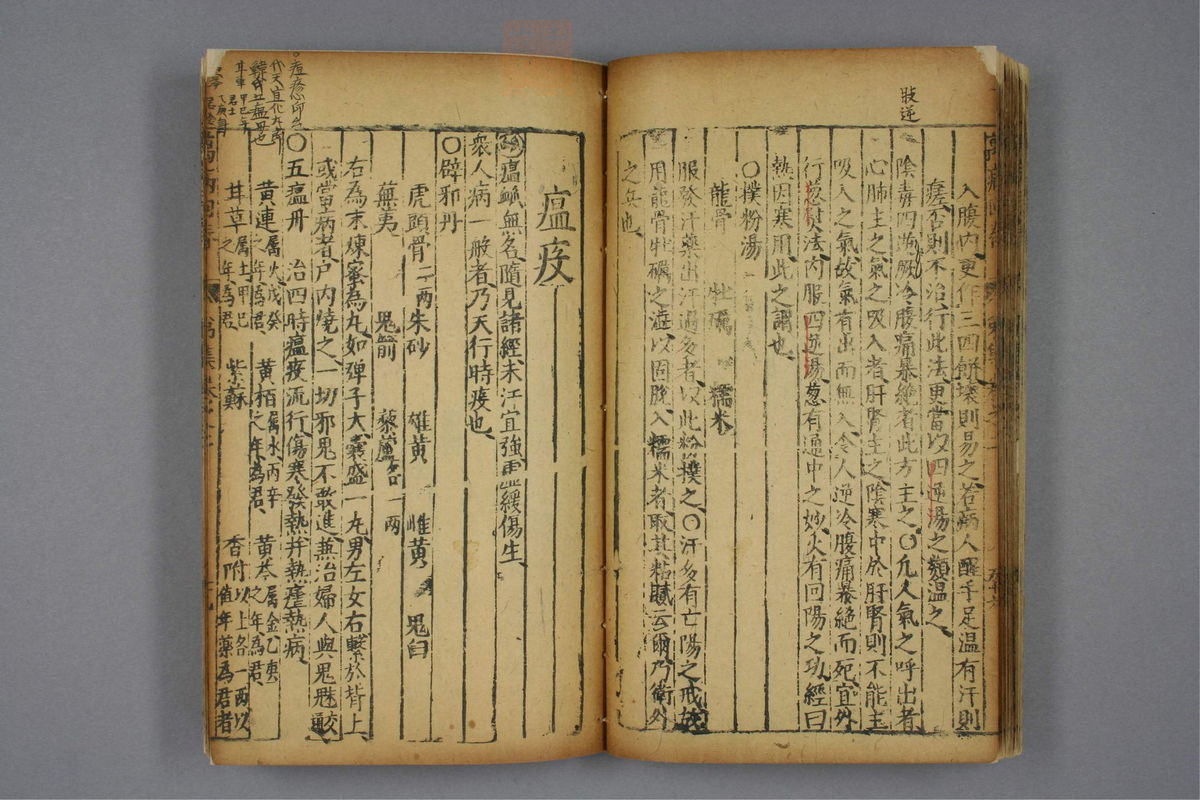 厥逆
入腹内更作三四餅壞則易之若病人醒手足温有汗則
瘥否則不治行此法更當以四逆湯之類温之
陰毒四肢厥冷腹痛暴絶者此方主之〇凡人氣之呼出者
心肺主之氣之吸入者肝腎主之陰寒中於肝腎則不能主
吸入之氣故氣有出而無入令人逆冷腹痛暴絶而死宜外
行葱熨法内服四逆湯葱有通中之妙火有回陽之功經曰
熱因寒用此之謂也
〇撲粉湯
龍骨 牡礪 糯米
服發汗藥出汗過多者以此粉撲之〇汗多有亡陽之戒故
用龍骨牡礪之澁以固脫入糯米者取其粘膩云爾乃衛外
之兵也
瘟疫
瘟無名隨見諸經末江宜強靈緩傷生
衆人病一般者乃天行時疫也
〇辟邪丹
虎頭骨二兩 朱砂 雄黄 雌黄 鬼臼
蕪荑 鬼箭 藜蘆各一兩
右為末煉蜜為丸如彈子大囊盛一丸男左女右繫於背上
或當病者户内燒之一切邪鬼不敢進兼治婦人與鬼魅交通
〇五瘟丹 治四時瘟疫流行傷寒發熱并熱瘧熱病
黄連屬火戊癸之年為君 黄栢屬水丙辛之年為君 黄芩屬金乙庚之年為君
甘草屬土甲巳之年為君 紫蘇 香附以上各一兩以值年藥為君者